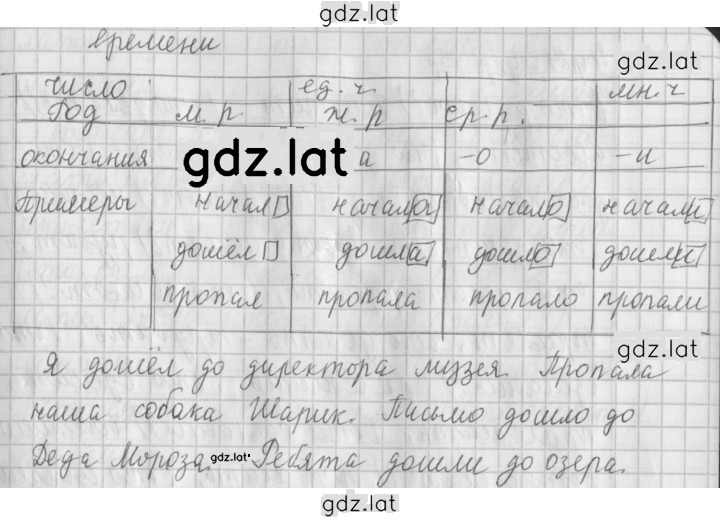 gdz.lat
времени
gdz.lat
число ед. ч. мн. ч
Род м. р ж. р ср. р.
окончания gdz.lat а -о -и
Примеры начал начала начало начали
дошёл дошла дошло дошли
пропал пропала пропало пропали
gdz.lat
Я дошёл до директора музея. Пропала
наша собака Шарик. Письмо дошло до
Деда Мороза. gdz.lat Ребята дошли до озера.
gdz.lat